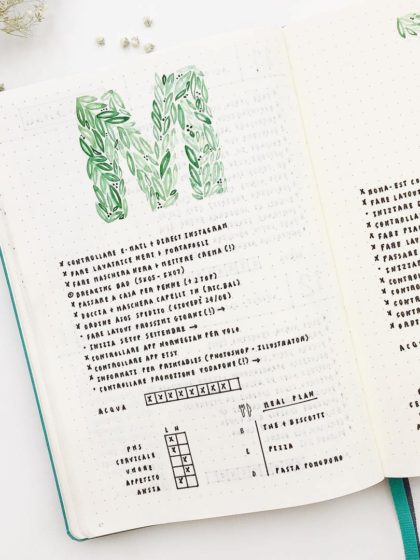 M
x CONTROLLARE E-MAIL + DIRECT INSTAGRAM
x FARE LAVATRICE NERI + PORTAFOGLI
x FARE MASCHERA NERA + METTERE CREMA (!)
BREAKING BAD (5x05 - 5x07)
x PASSARE A CASA PER PENNE [+ 2 TOP]
x DOCCIA + MASCHERA CAPELLI TM (RIC. BAL)
x ORDINE ASOS SPEDITO (GIOVEDÌ 24/08)
• FARE LAYOUT PROSSIMI GIORNI (!) →
• INIZIA SETUP SETTEMBRE →
x CONTROLLARE APP NORWEGIAN PER VOLO
x CONTROLLARE APP ETSY
x INFORMATI PER PRINTABLES (PHOTOSHOP + ILLUSTRATOR)
• CONTROLLARE PROMOZIONE VODAFONE (!) →
ACQUA x x x x x x x x
L H
PMS x
CERVICALE x
UMORE x
APPETITO x
ANSIA x
MEAL PLAN
B THE + BISCOTTI
L PIZZA
D PASTA POMODORO
x ROMA - EST
x FARE LAYOU
x INIZIARE
x CONTRO
x FARE
x FARE
x PASSARE
x INIZIARE
CONTRO
CONTRO
FARE
CONTRO
ACQUA